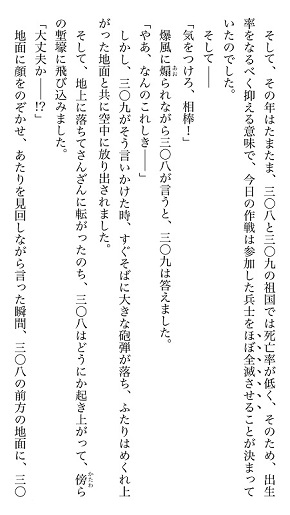 そして、その年はたまたま、三〇八と三〇九の祖国では死亡率が低く、そのため、出生
率をなるべく抑える意味で、今日の作戦は参加した兵士をほぼ全滅させることが決まって
いたのでした。
そして――
「気をつけろ、相棒！」
爆風に煽られながら三〇八が言うと、三〇九は答えました。
「やあ、なんのこれしき――」
しかし、三〇九がそう言いかけた時、すぐそばに大きな砲弾が落ち、ふたりはめくれ上
がった地面と共に空中に放り出されました。
そして、地上に落ちてさんざんに転がったのち、三〇八はどうにか起き上がって、傍ら
の塹壕に飛び込みました。
「大丈夫か――!?」
地面に顔をのぞかせ、あたりを見回しながら言った瞬間、三〇八の前方の地面に、三〇